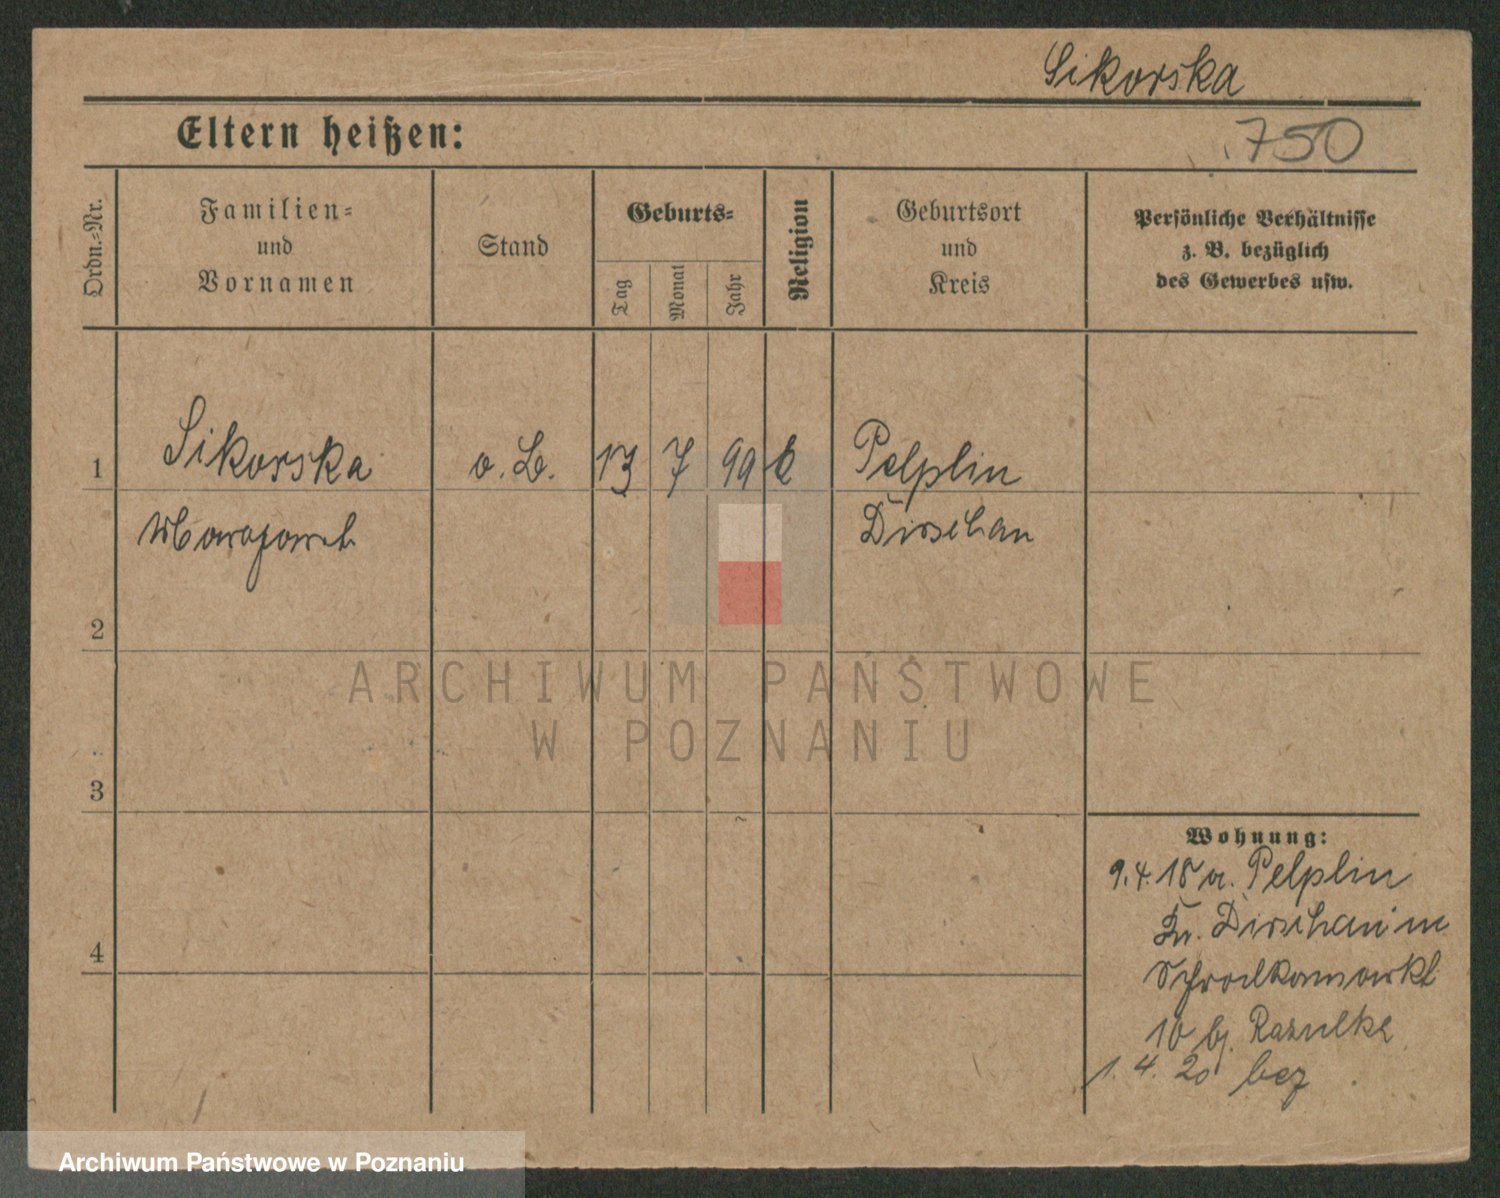 Sikorska
Eltern heißen:
750
Ordn.-Nr.
Familien-
und
Vornamen
Stand
Geburts-
Tag
Monat
Jahr
Religion
Geburtsort
und
Kreis
Persönliche Verhältnisse
z. B. bezüglich
des Gewerbes usw.
1 Sikorska o. B. 13 7 99 k Pelplin
Margareth Dirschau
2
3
4
Wohnung:
9.4.18 v. Pelplin
Kr. Dirschau in
Schrodkamarkt
10 bj.
1. 4. 20
ARCHIWUM PAŃSTWOWE
W POZNANIU
Archiwum Państwowe w Poznaniu